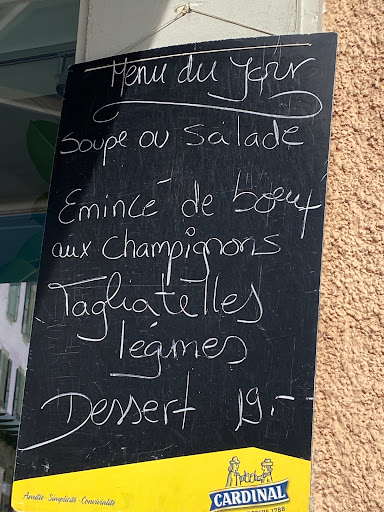 Menu du jour
Soupe ou salade
Emincé de boeuf
aux champignons
Tagliatelles
légumes
Dessert 19.-
Amitié - Simplicité - Convivialité
CARDINAL
DEPUIS 1788